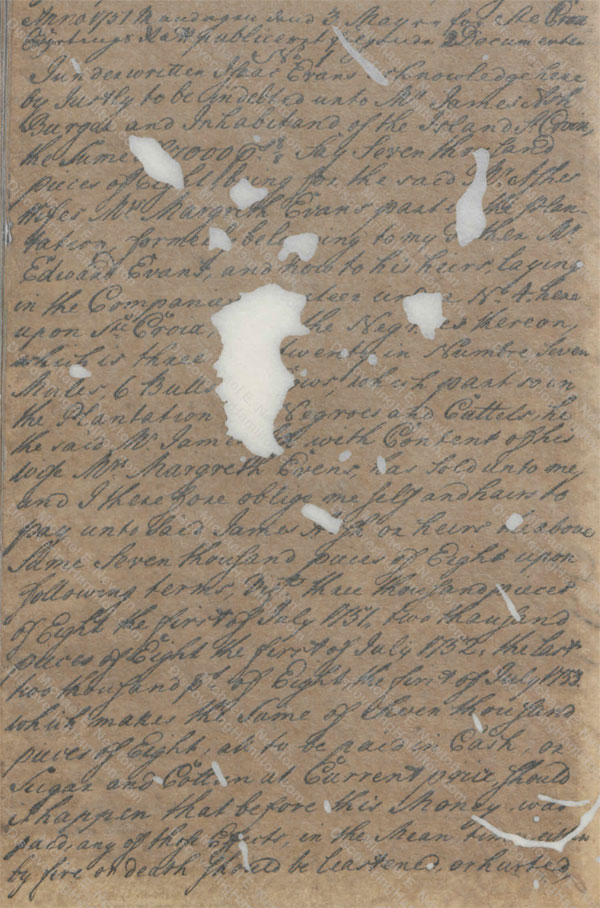 Anno 1751 Mandagen dend 3 May
publiceret 2 Documenter
No. 1
I underwritten Isaac Evans acknowledge here
by Justly to be Indebted unto Mr. James Ash
Burgar and Inhabitand of the Island St. Croix,
the Sume 7000 Say Seven thousand
pieces of Eight being for the said Mr. Ashes
wifes Mrs. Margreth Evans part the plan-
tation, formerly belonging to my Mr.
Edward Evans, and now to his heirs, laying
in the Companies No. 4. here
upon Ste. Croix, the Negroes thereon,
which is three twenty in Numbre Seven
Mules, 6 Bulls which part so in
the Plantation Negroes and Cattels, he
the said Mr. James with Content of his
wife Mrs. Margreth Evens, has Sold unto me
and I therefore oblige me self and hairs to
pay unto Said James Ash or heirs the above
Same Seven thousand pieces of Eight upon
following terms, three thousand pieces
of Eight the first of July 1751, two thausand
pieces of Eight the first of July 1752, the last
two thousand ps. of Eight the first of July 1753.
which makes the Same of Seven thousand
pieces of Eight, all to be paid in Cash, or
Sugar and Cotton at Current price, Should
it happen that before this Money was
paid, any of those Effects, in the Mean time,
by fire or death Should be leastened, or hurted,